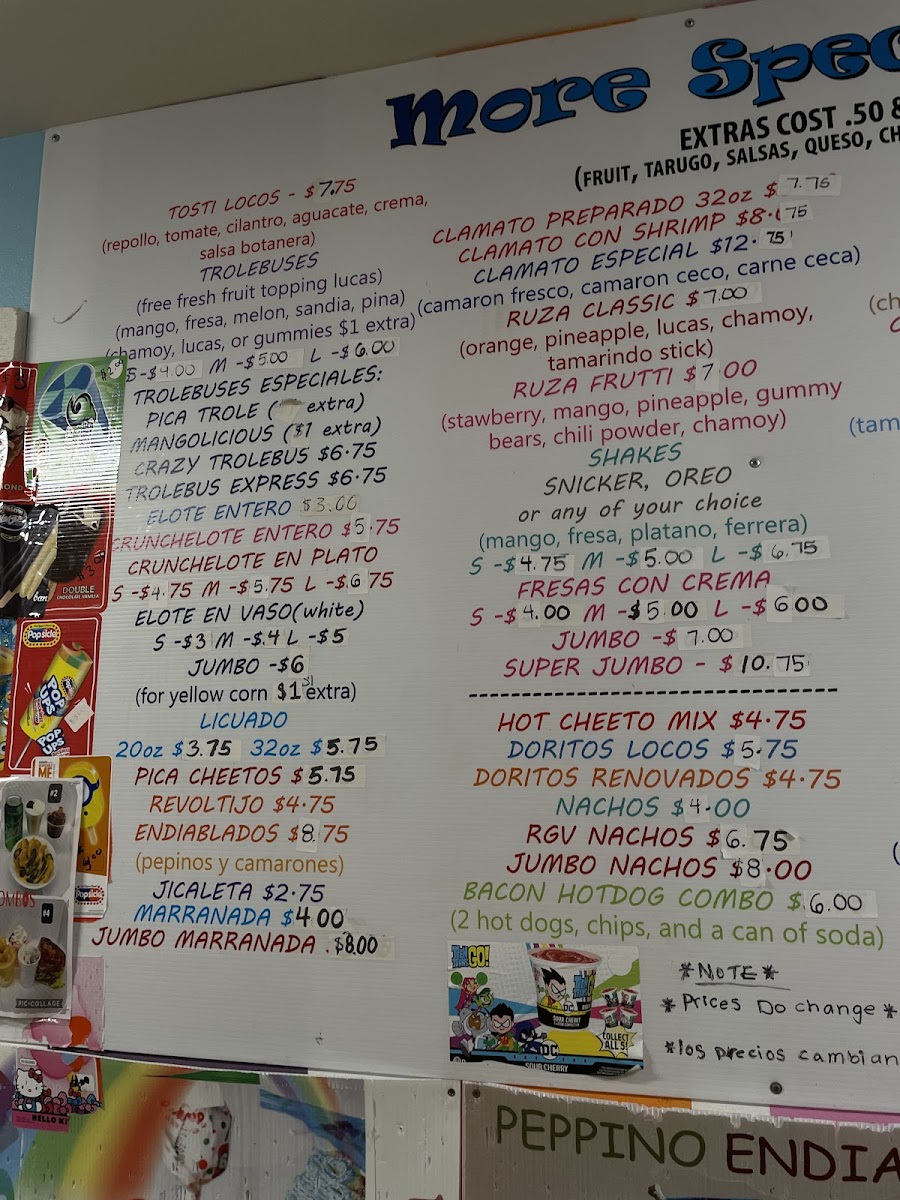 More Spec
EXTRAS COST .50 &
(FRUIT, TARUGO, SALSAS, QUESO, CH
TOSTI LOCOS - $7.75
(repollo, tomate, cilantro, aguacate, crema,
salsa botanera)
TROLEBUSES
(free fresh fruit topping lucas)
(mango, fresa, melon, sandia, pina)
(chamoy, lucas, or gummies $1 extra)
S-$4.00 M -$5.00 L -$6.00
TROLEBUSES ESPECIALES:
PICA TROLE ( extra)
MANGOLICIOUS ($1 extra)
CRAZY TROLEBUS $6.75
TROLEBUS EXPRESS $6.75
ELOTE ENTERO $3.00
CRUNCHELOTE ENTERO $5.75
CRUNCHELOTE EN PLATO
S -$4.75 M -$5.75 L -$6 75
ELOTE EN VASO(white)
S -$3 M -$.4 L -$5
JUMBO -$6
(for yellow corn $1 extra)
LICUADO
20oz $3.75 32oz $5.75
PICA CHEETOS $5.75
REVOLTIJO $4.75
ENDIABLADOS $8.75
(pepinos y camarones)
JICALETA $2.75
MARRANADA $4.00
JUMBO MARRANADA .$8.00
CLAMATO PREPARADO 32oz $ 7.75
CLAMATO CON SHRIMP $8.75
CLAMATO ESPECIAL $12.75
(camaron fresco, camaron ceco, carne ceca)
RUZA CLASSIC $7.00
(orange, pineapple, lucas, chamoy,
tamarindo stick)
RUZA FRUTTI $7 00
(stawberry, mango, pineapple, gummy
bears, chili powder, chamoy)
SHAKES
SNICKER, OREO
or any of your choice
(mango, fresa, platano, ferrera)
S -$4.75 M -$5.00 L -$6.75
FRESAS CON CREMA
S -$4.00 M -$5 00 L -$6 00
JUMBO -$ 7.00
SUPER JUMBO - $ 10.75
HOT CHEETO MIX $4.75
DORITOS LOCOS $5.75
DORITOS RENOVADOS $4.75
NACHOS $4.00
RGV NACHOS $6.75
JUMBO NACHOS $8.00
BACON HOTDOG COMBO $6.00
(2 hot dogs, chips, and a can of soda)
*NOTE*
*Prices Do change*
*los precios cambian
(ch
(tam
(
GO!
SOUR CHERRY
COLLECT
ALL 5!
DC
SOUR CHERRY
DOUBLE
CHOCOLATE VANILLA
Popsicle
POP
UPS
POP
UPS
ME
Popsicle
#2
OMBOS
#4
PIC•COLLAGE
HELLO KI
PEPPINO ENDIA